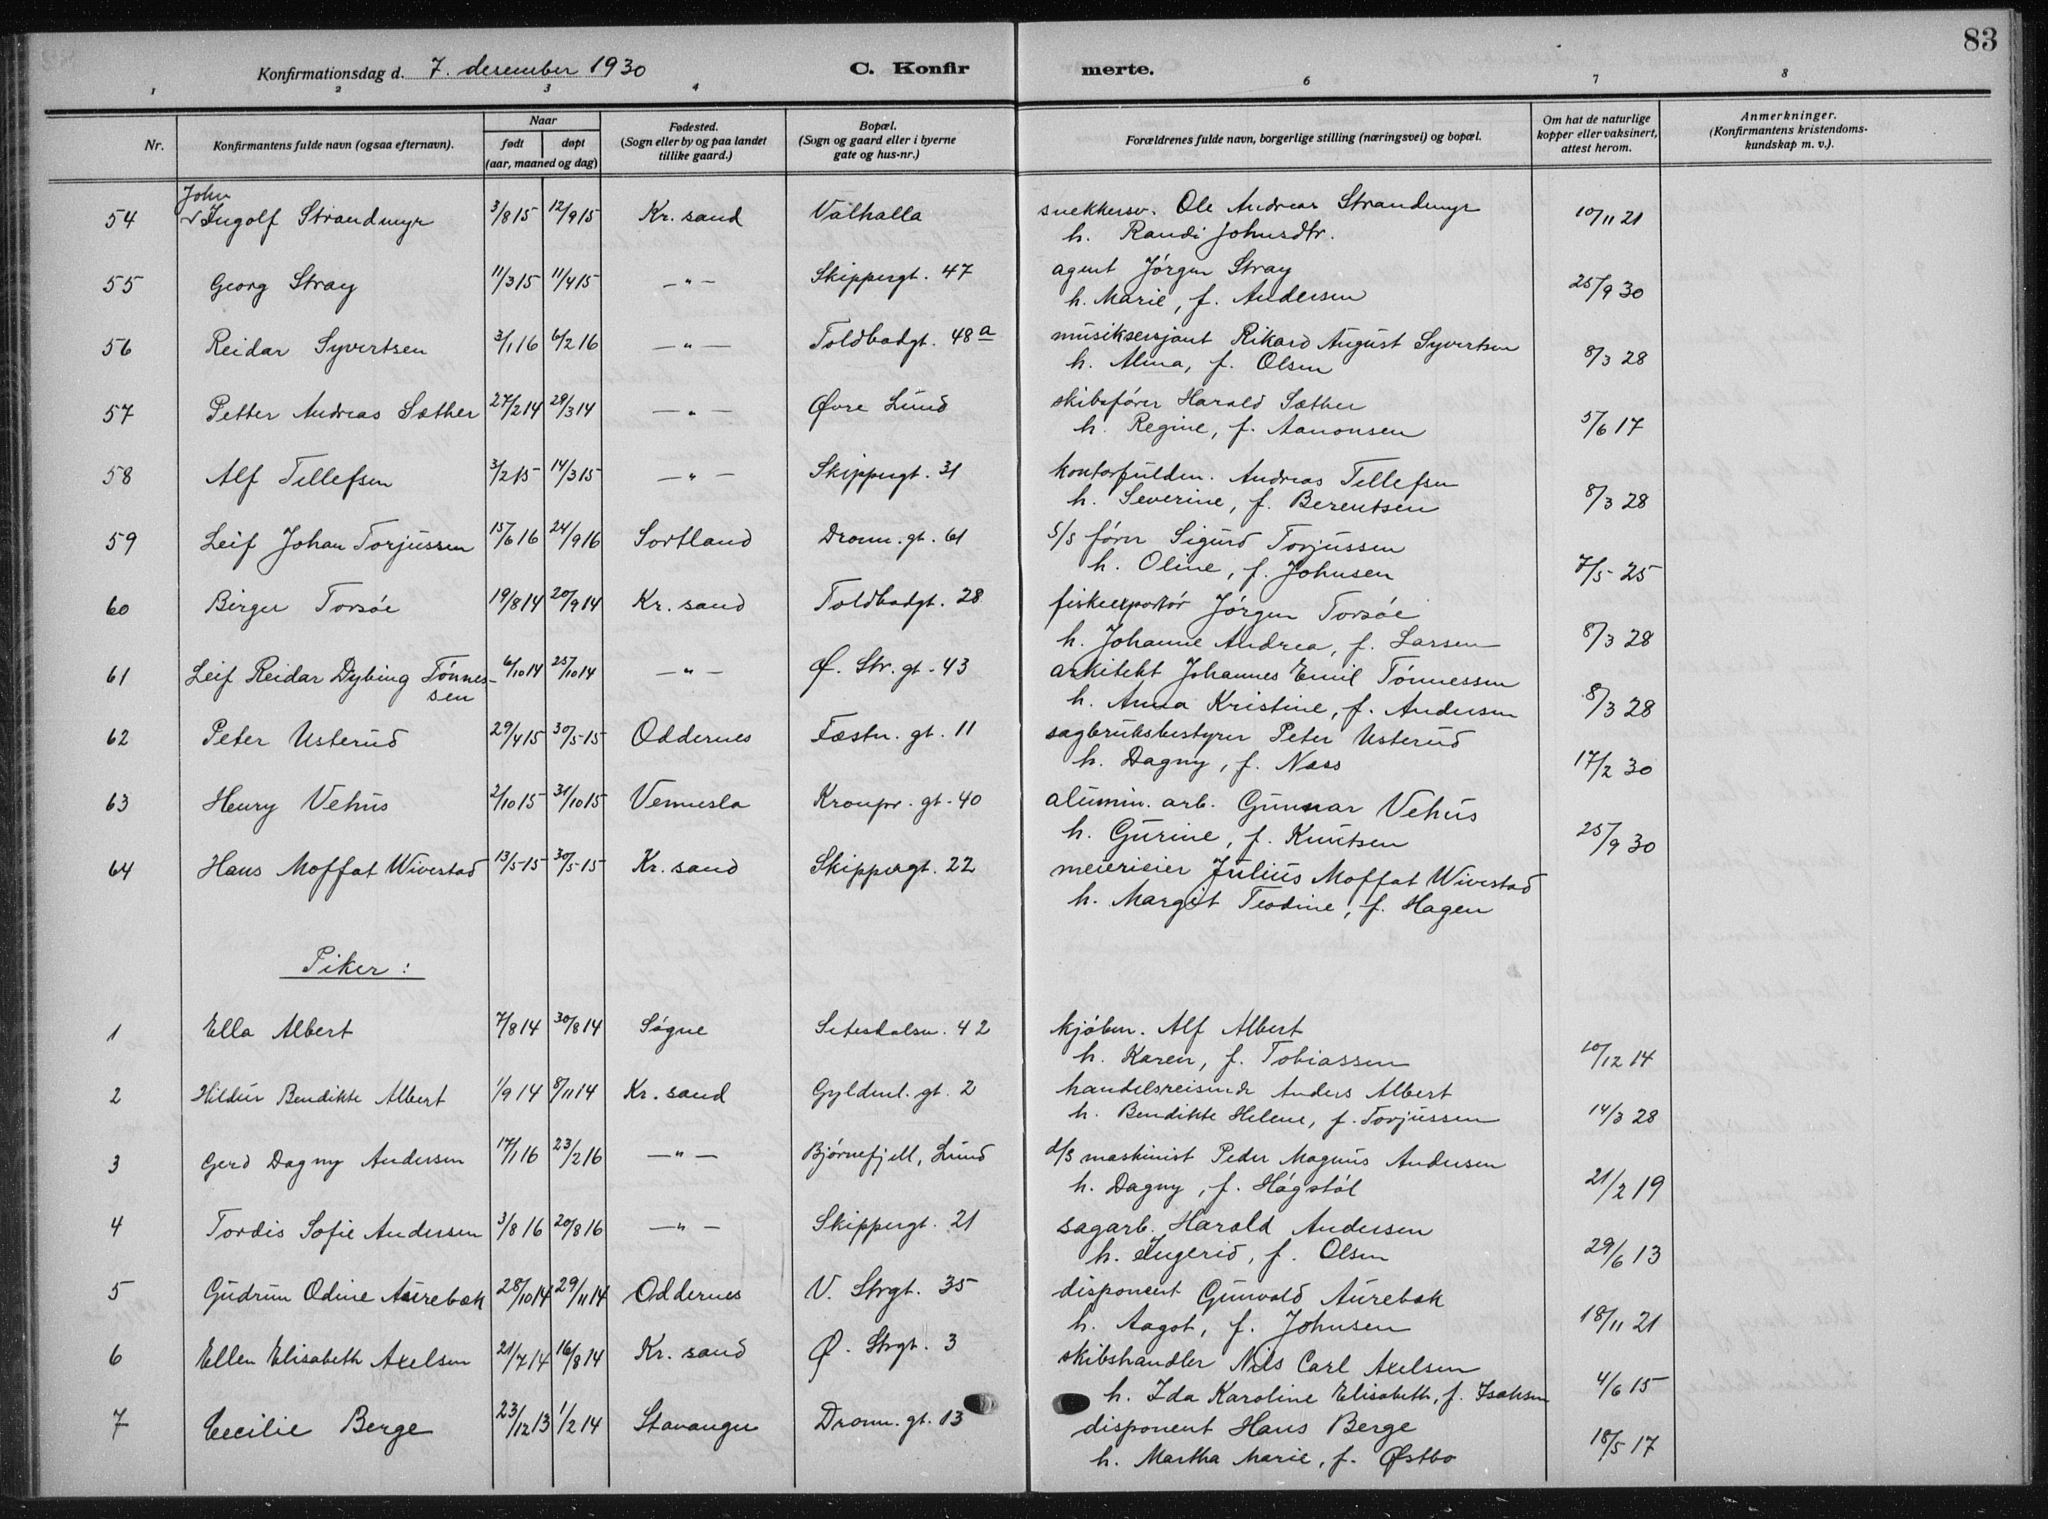 83
Konfirmationsdag d. 7. desember 1930 C. Konfirmerte.
1 2 3 4 5 6 7 8
Nr. Konfirmantens fulde navn (ogsaa efternavn). Naar født døpt (aar, maaned og dag) Fødested. (Sogn eller by og paa landet tillike gaard.) Bopæl. (Sogn og gaard eller i byerne gate og hus-nr.) Forældrenes fulde navn, borgerlige stilling (næringsvei) og bopæl. Om hat de naturlige kopper eller vaksinert, attest herom. Anmerkninger. (Konfirmantens kristendomskundskap m. v.).
John
54 Ingolf Strandmyr 3/8 15 12/9 15 Kr. sand Valhalla snekkersv. Ole Andreas Strandmyr 10/11 21
h. Randi Johnsdtr.
55 Georg Stray 11/3 15 11/4 15 —"— Skippergt. 47 agent Jørgen Stray 25/9 30
h. Marie, f. Andersen
56 Reidar Syvertsen 3/1 16 6/2 16 —"— Toldbodgt. 48a musiksersjant Rikard August Syvertsen 8/3 28
h. Alma, f. Olsen
57 Petter Andreas Sæther 27/2 14 29/3 14 —"— Øvre Lund skibsfører Harald Sæther 5/6 17
h. Regine, f. Aanonsen
58 Alf Tellefsen 3/2 15 14/3 15 —"— Skippergt. 31 kontorfuldm. Andreas Tellefsen 8/3 28
h. Severine, f. Berentsen
59 Leif Johan Torjussen 15/6 16 24/9 16 Sortland Dronn. gt. 61 s/s fører Sigurd Torjussen 7/5 25
h. Oline, f. Johnsen
60 Birger Torsøe 19/8 14 20/9 14 Kr. sand Toldbodgt. 28 fiskeexportør Jørgen Torsøe 8/3 28
h. Johanne Andrea, f. Larsen
61 Leif Reidar Dybing Tønnes- 6/10 14 25/10 14 —"— Ø. Str. gt. 43 arkitekt Johannes Emil Tønnessen 8/3 28
sen h. Anna Kristine, f. Andersen
62 Peter Usterud 29/4 15 30/5-15 Oddernes Fæstn. gt. 11 sagbruksbestyrer Peter Usterud 17/2 30
h. Dagny, f. Næss
63 Henry Vehus 2/10 15 31/10 15 Vennesla Kronpr. gt. 40 alumin. arb. Gunnar Vehus 25/9 30
h. Gurine, f. Knutsen
64 Hans Moffat Wivestad 13/5-15 30/5-15 Kr. sand Skippergt. 22 meierieier Julius Moffat Wivestad
h. Margit Teodine, f. Hagen
Piker:
1 Ella Albert 7/8 14 30/8 14 Søgne Setesdalsv. 42 kjøbm. Alf Albert 10/12 14
h. Karen, f. Tobiassen
2 Hildur Bendikte Albert 1/9 14 8/11 14 Kr. sand Gyldenl. gt. 2 handelsreisende Anders Albert 14/3 28
h. Bendikte Helene, f. Torjussen
3 Gerd Dagny Andersen 17/1 16 23/2 16 —"— Bjørnefjell, Lund d/s maskinist Peder Magnus Andersen 21/2 19
h. Dagny, f. Høgstøl
4 Tordis Sofie Andersen 3/8 16 20/8 16 —"— Skippergt. 21 sagarb. Harald Andersen 29/6 13
h. Ingerid, f. Olsen
5 Gudrun Odine Aurebæk 28/10 14 29/11 14 Oddernes V. Strgt. 35 disponent Gunvald Aurebæk 18/11 21
h. Aagot, f. Johnsen
6 Ellen Elisabeth Axelsen 21/7 14 16/8 14 Kr. sand Ø. Strgt. 3 skibshandler Nils Carl Axelsen 4/6 15
h. Ida Karoline Elisabeth, f. Isaksen
7 Cecilie Berge 23/12 13 1/2 14 Stavanger Dronn. gt. 13 disponent Hans Berge 18/5 17
h. Martha Marie, f. Østbo